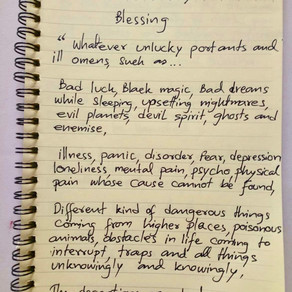 Blessing
"Whatever unlucky portants and
ill omens, such as...
Bad luck, Black magic, Bad dreams
while sleeping, upsetting nightmares,
evil planets, devil spirit, ghosts and
enemise,
illness, panic, disorder, fear, depression
loneliness, mental pain, psycho, physical
pain whose cause cannot be found,
Different kind of dangerous things
coming from higher places, poisonous
animals, obstacles in life coming to
interrupt, traps and all things
unknowingly and knowingly,